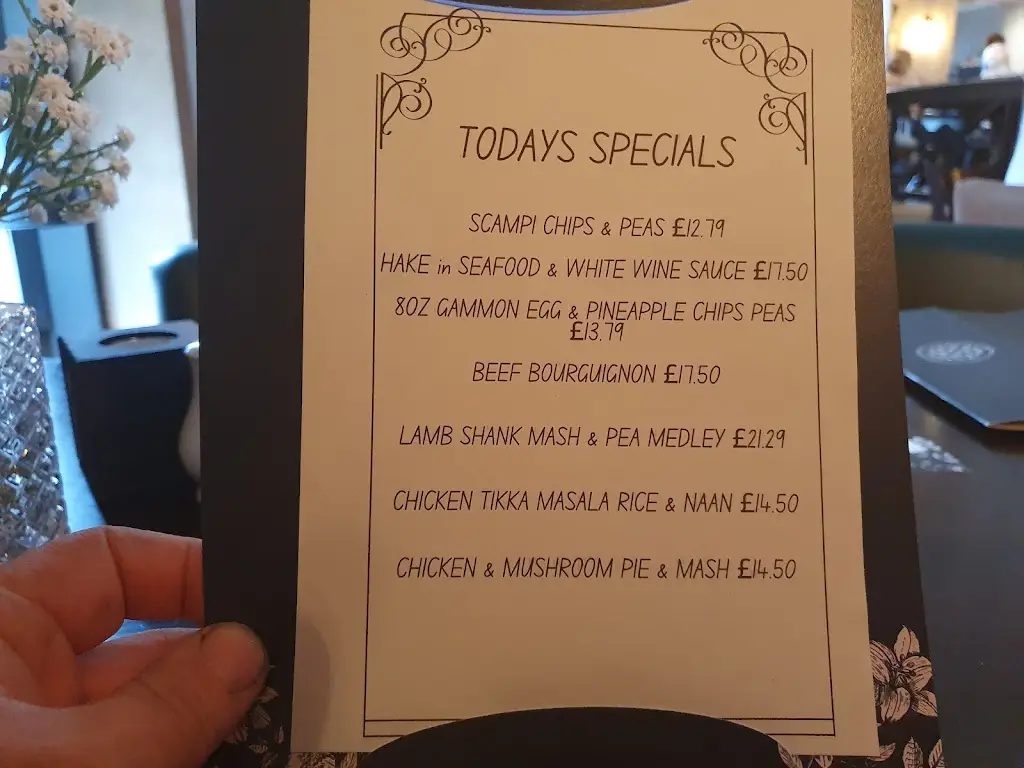 TODAYS SPECIALS
SCAMPI CHIPS & PEAS £12.79
HAKE in SEAFOOD & WHITE WINE SAUCE £17.50
8OZ GAMMON EGG & PINEAPPLE CHIPS PEAS
£13.79
BEEF BOURGUIGNON £17.50
LAMB SHANK MASH & PEA MEDLEY £21.29
CHICKEN TIKKA MASALA RICE & NAAN £14.50
CHICKEN & MUSHROOM PIE & MASH £14.50